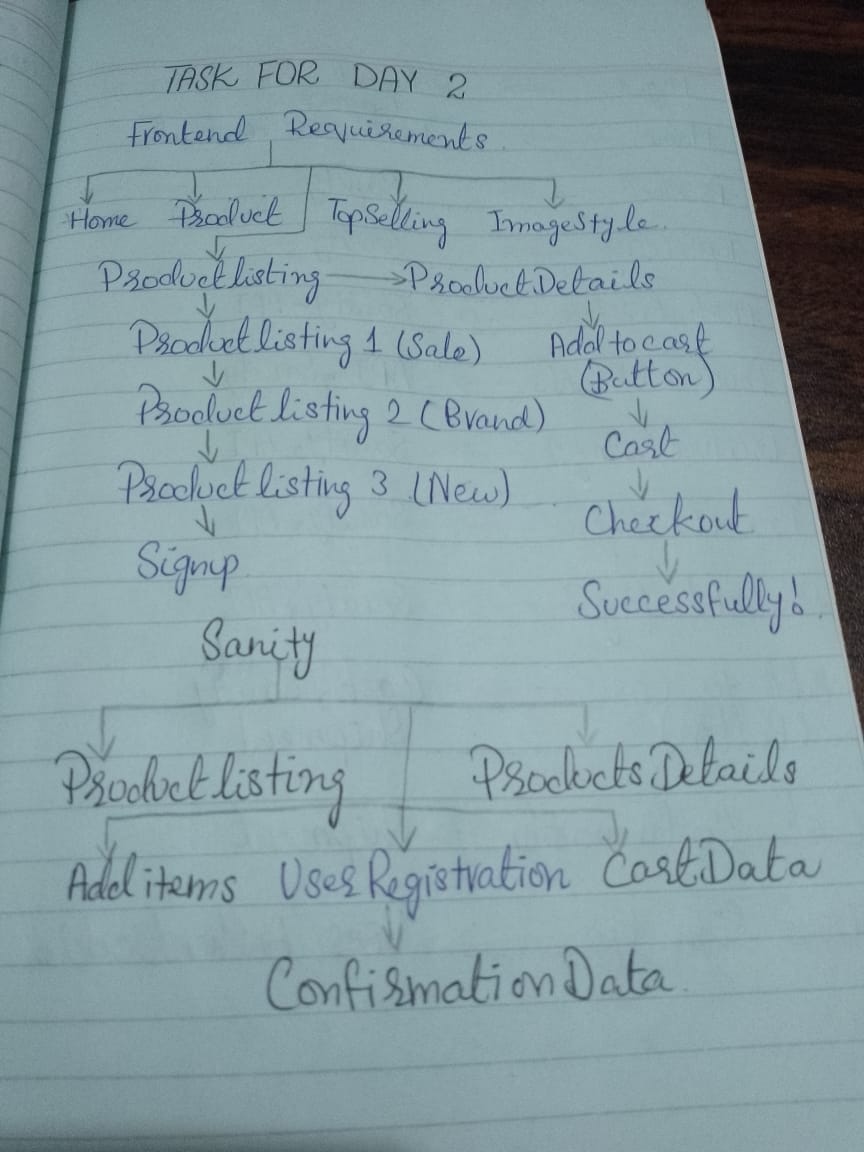 TASK FOR DAY 2
Frontend Requirements.
Home Product TopSelling ImageStyle.
Productlisting → ProductDetails
Productlisting 1 (Sale) Add to cart
(Button)
Product listing 2 (Brand)
Cart
Product listing 3 (New)
Checkout
Signup
Successfully!
Sanity
Productlisting Products Details
Add items User Registration Cart Data
Confirmation Data.